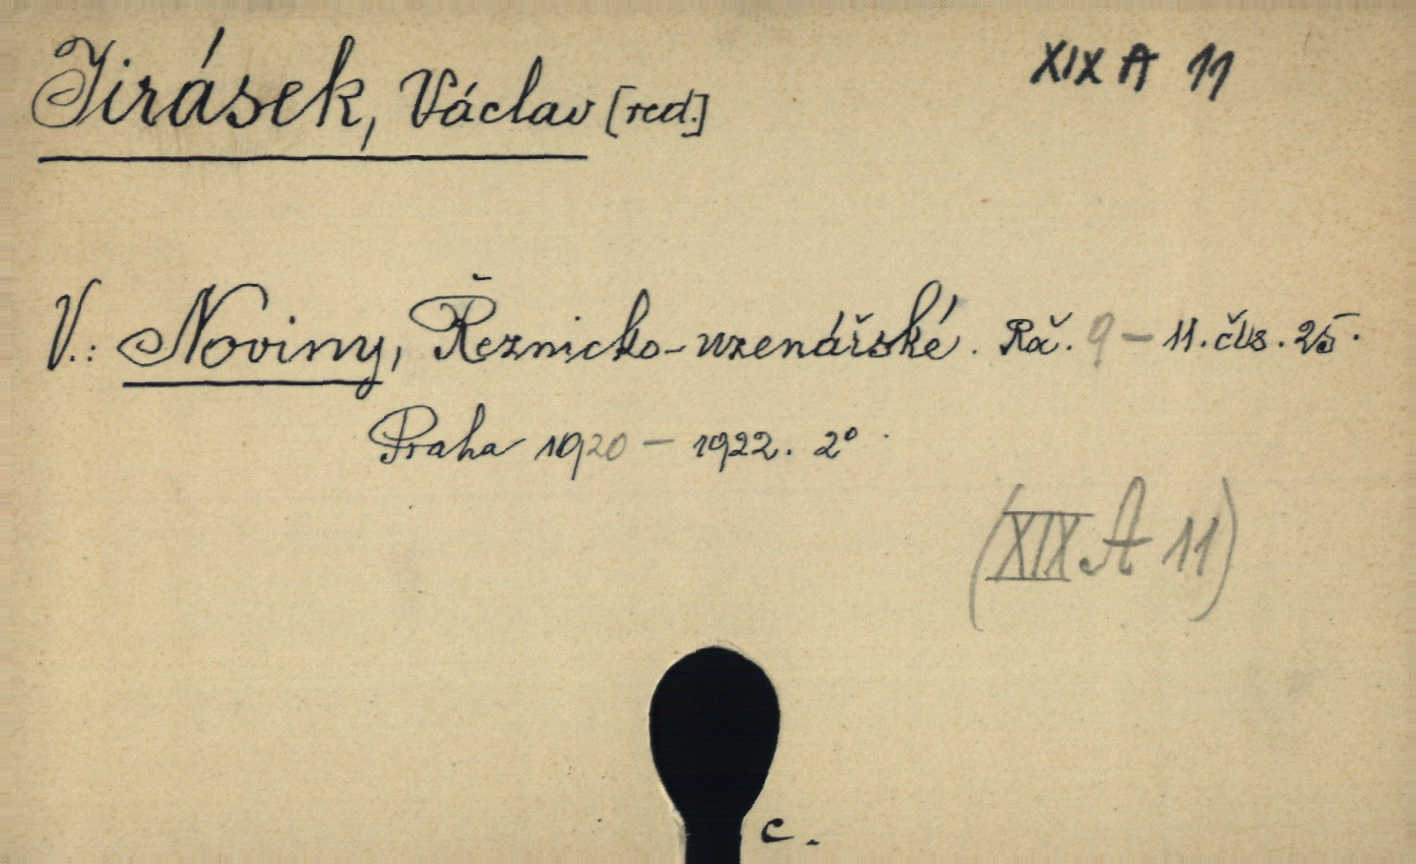 Jirásek, Václav [red.] XIX A 11
V.: Noviny, Řeznicko-uzenářské. Roč. 9 – 11. čís. 25.
Praha 1920 – 1922. 2°.
(XIX A 11)
c.